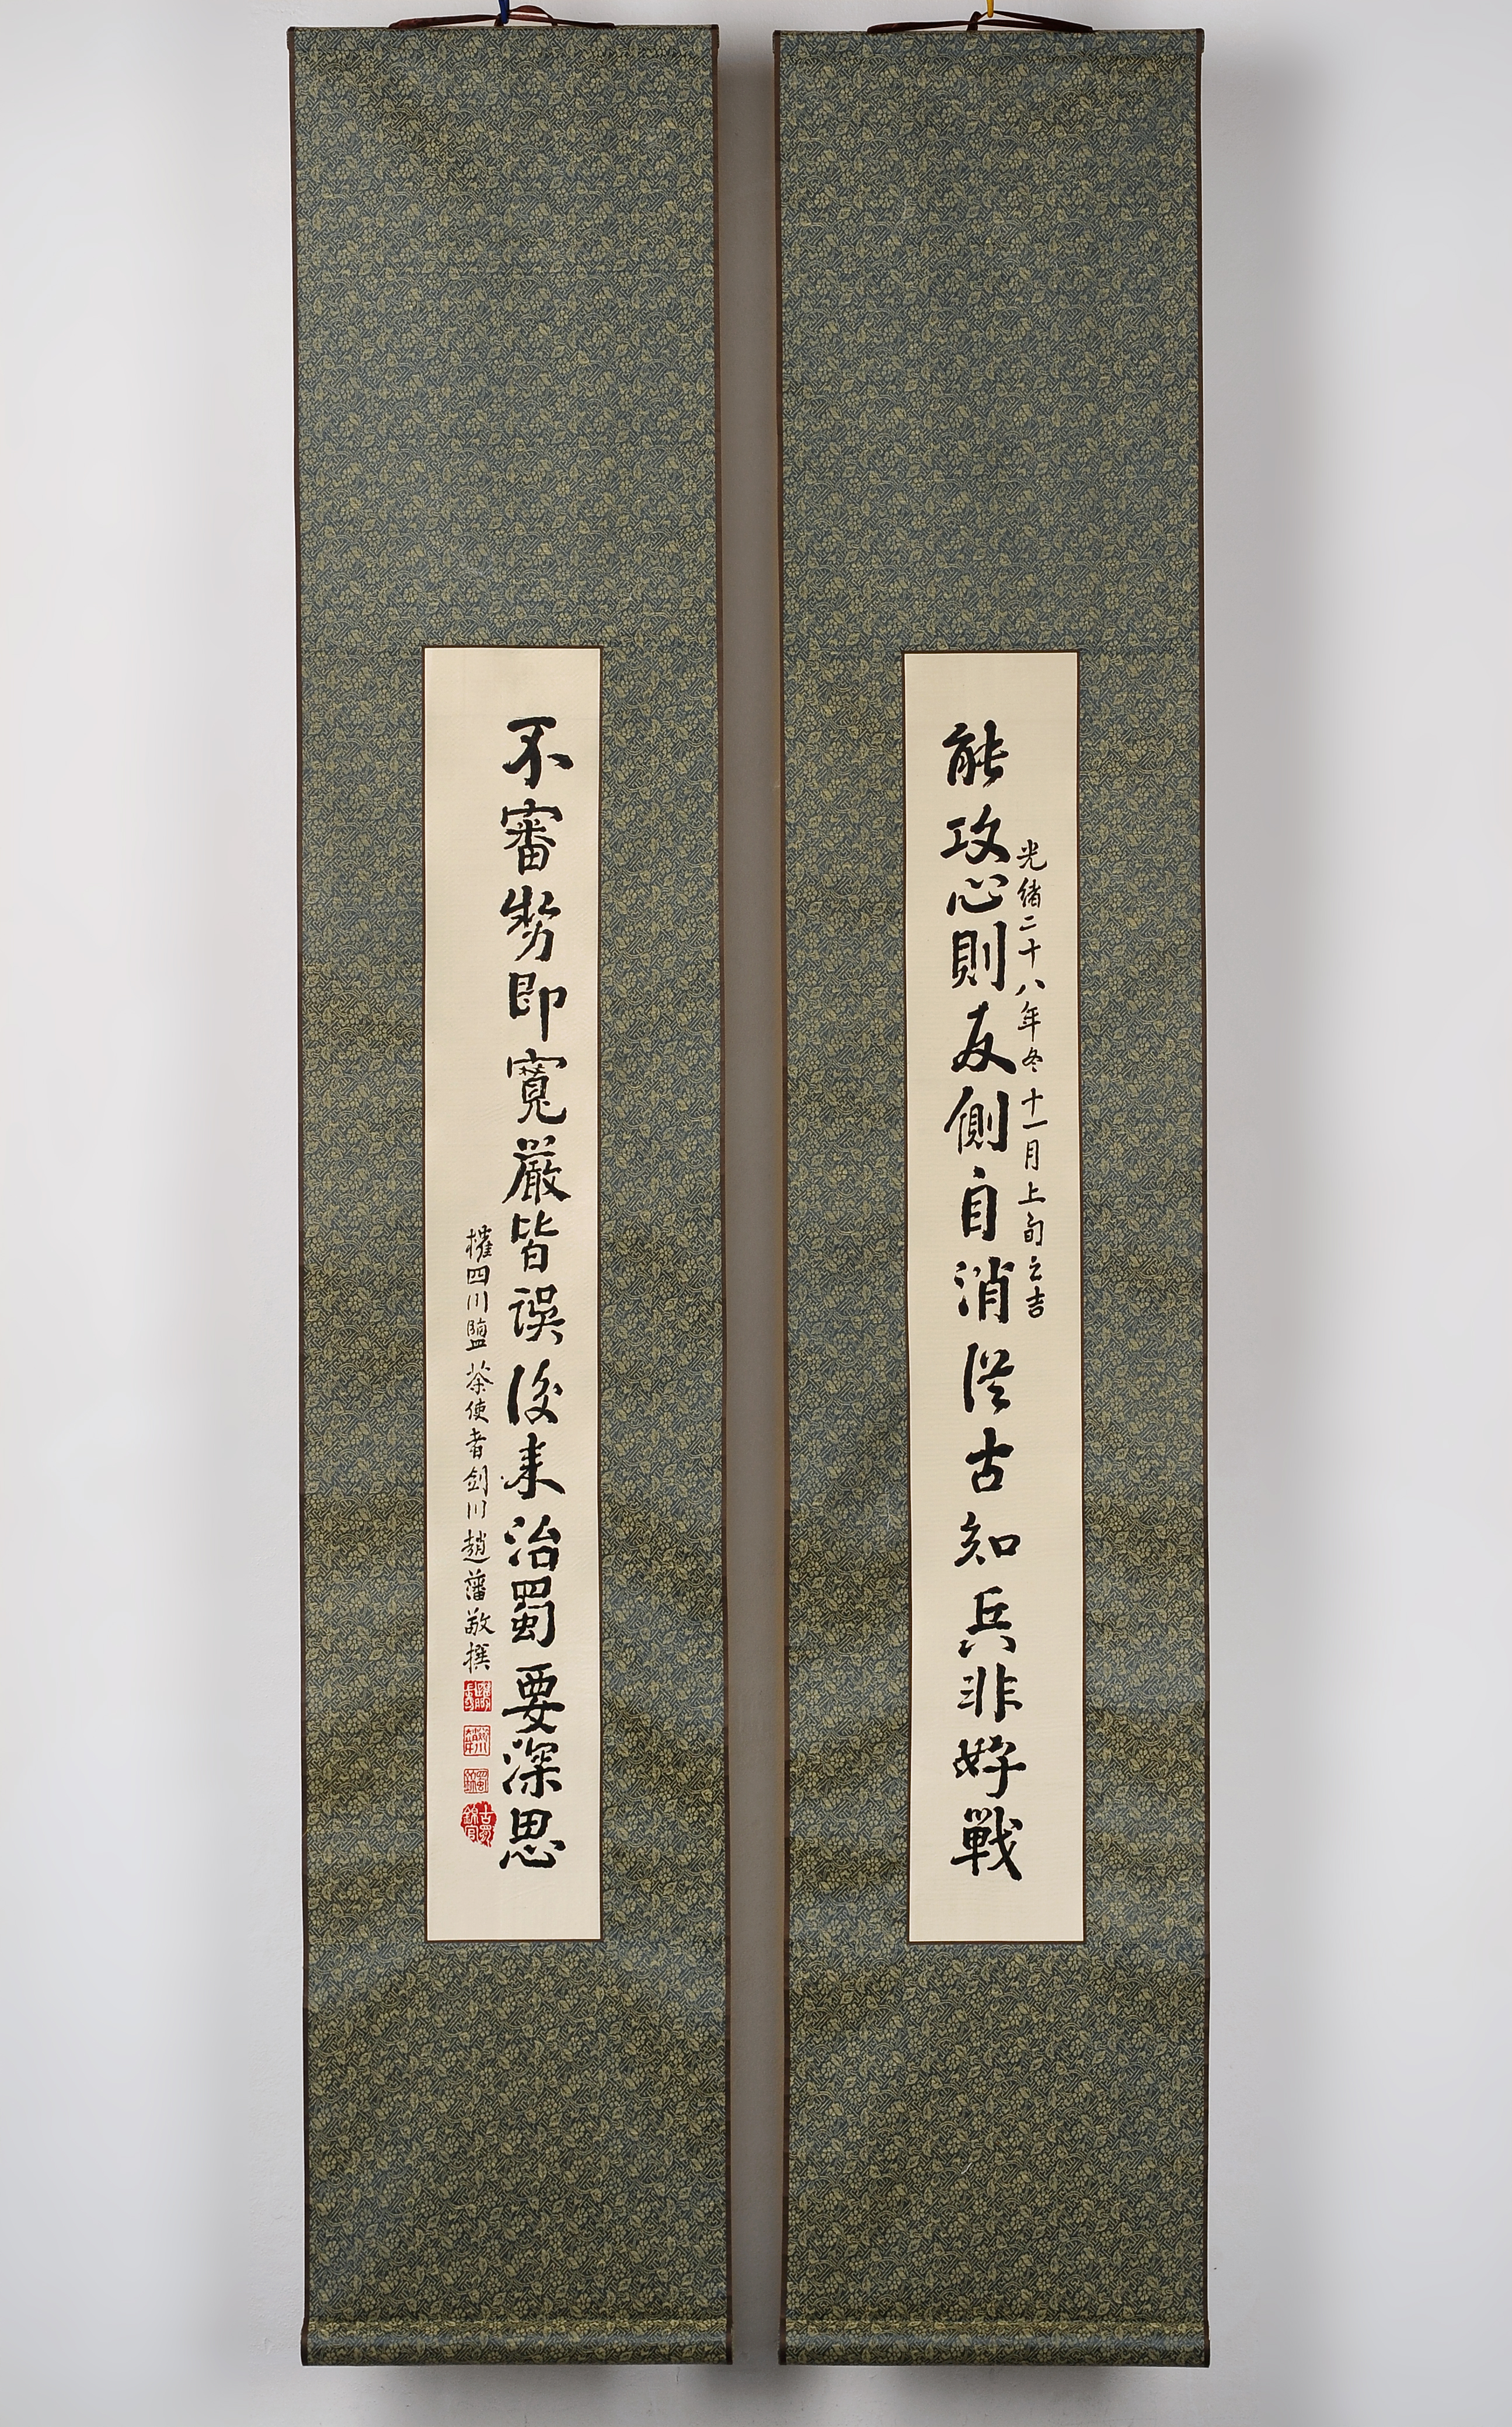 光緒二十八年冬十一月上旬之吉
能攻心則反側自消從古知兵非好戰
不審勢即寬嚴皆誤後來治蜀要深思
權四川鹽茶使者劍川趙藩敬撰
古蜀
錦官